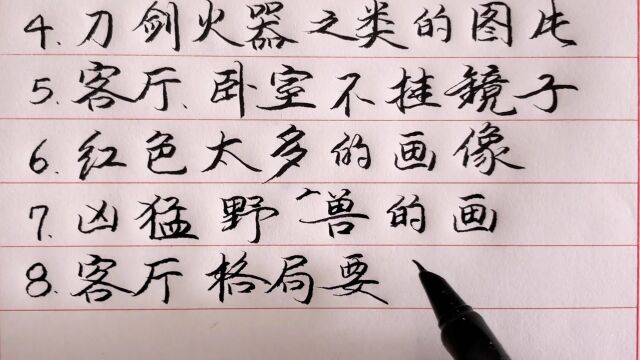 4.刀剑火器之类的图片
5.客厅、卧室不挂镜子
6.红色太多的画像
7.凶猛野兽的画
8.客厅格局要